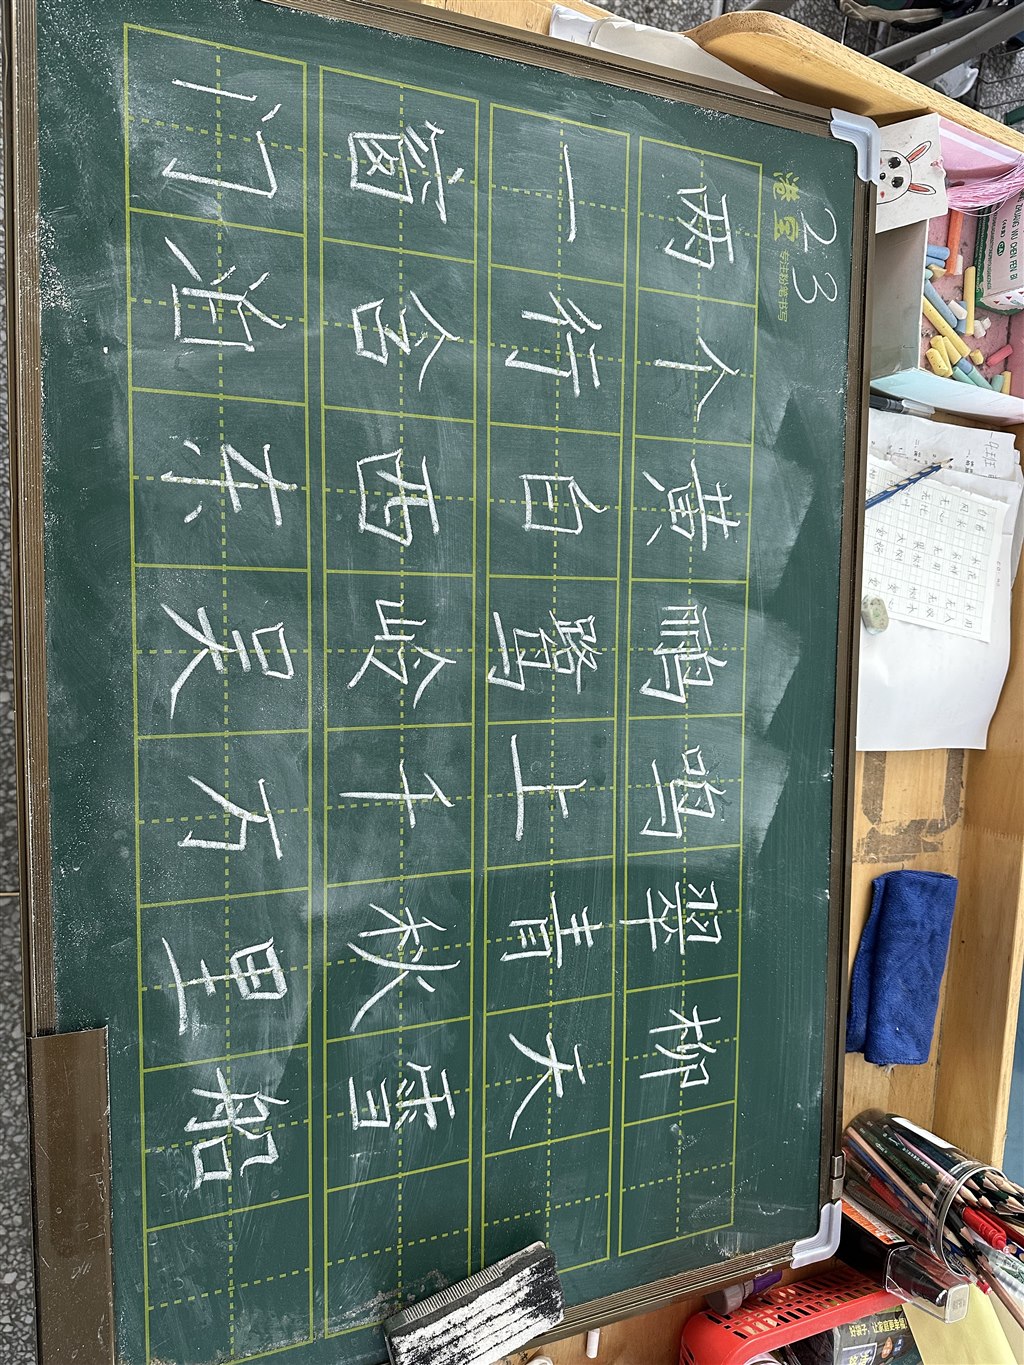 23
两个黄鹂鸣翠柳
一行白鹭上青天
窗含西岭千秋雪
门泊东吴万里船